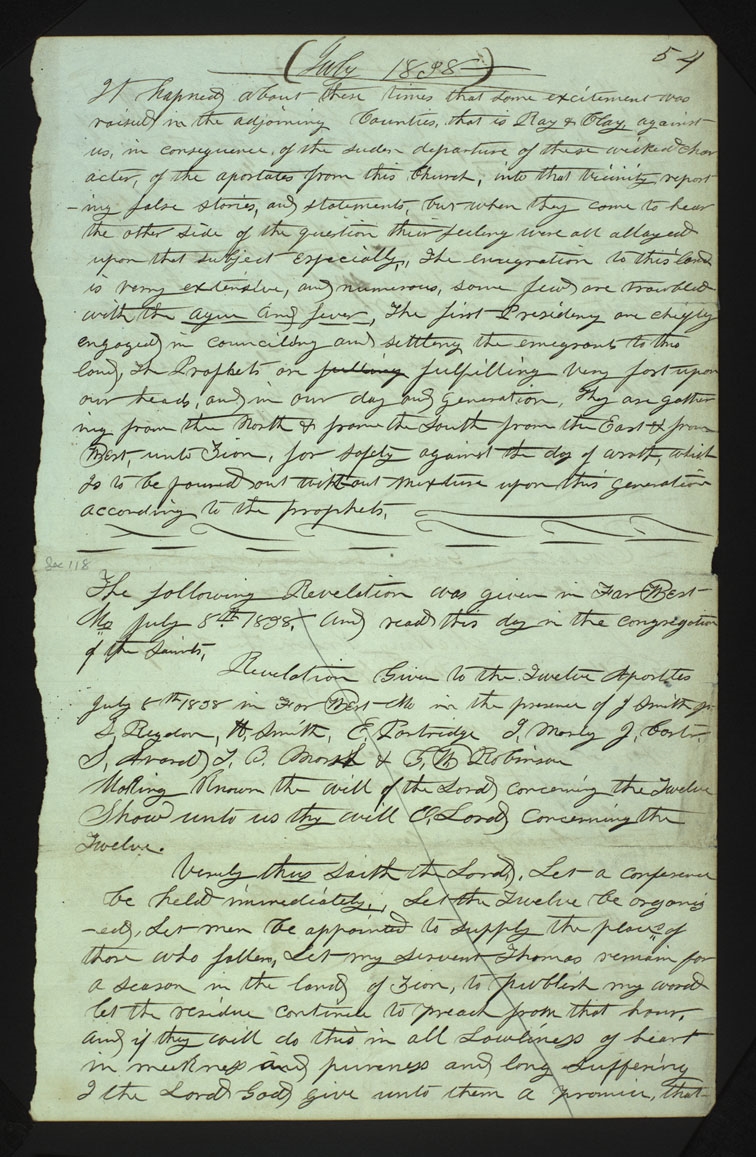 (July 1838) 54
It hapned about these times that some excitement was
raised in the adjoining Counties, that is Ray & Clay, against
us, in consequence, of the suden departure of these wicked char
acter, of the apostates from this Church, into that vicinity report
-ing false stories, and statements, but when they come to hear
the other side of the question their feeling were all allayed
upon that subject especially. The emigration to this land
is verry extensive, and numerous, some few are troubled
with the ague and fever, The first Presidency are chiefly
engaged in counciling and settling the emigrants to this
land, The Prophets are fulfilling very fast upon
our heads, and in our day and generation, They are gather
ing from the North & from the South from the East & from
West, unto Zion, for safety against the day of wrath, which
Is to be poured out without mixture upon this generation
according to the prophets.
Sec 118
The following Revelation was given in Far West
Mo July 8th 1838, and read this day in the congregation
of the Saints,
Revelation Given to the Twelve Apostles
July 8th 1838 in Far West Mo in the presence of J Smith jr.
S, Rigdon, H, Smith, E Partridge I, Morley J, Carter
S, Avard T, B, Marsh & G W Robinson
Making known the will of the Lord concerning the Twelve
Show unto us thy will O, Lord concerning the
Twelve.
Verily thus saith the Lord, Let a conference
be held immediately, Let the Twelve be organiz
-ed, Let men be appointed to supply the places of
those who fallen, Let my servent Thomas remain for
a season in the land of Zion, to publish my word
let the residue continue to preach from that hour,
and if they will do this in all Lowliness of heart
in meekness and pureness and long suffering
I the Lord God give unto them a promise, that